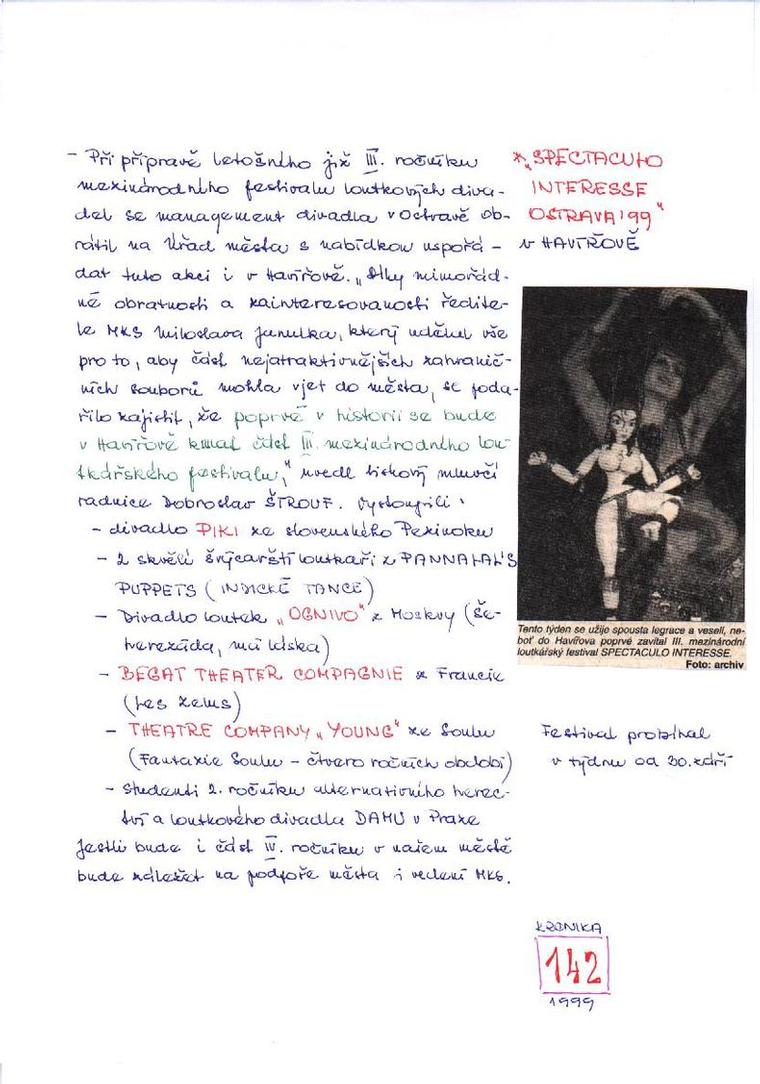 - Při přípravě letošního již III. ročníku
mezinárodního festivalu loutkových diva-
del se management divadla v Ostravě ob-
rátil na Úřad města s nabídkou uspořá-
dat tuto akci i v Havířově. „Díky mimořád-
né obratnosti a zainteresovanosti ředite-
le MKS Miloslava Janulka, který udělal vše
pro to, aby část nejatraktivnějších zahranič-
ních souborů mohla vjet do města, se poda-
řilo zajistit, že poprvé v historii se bude
v Havířově konat část III. mezinárodního lou-
tkářského festivalu," uvedl tiskový mluvčí
radnice Dobroslav ŠTROUF. Vystoupili:
- divadlo PIKI ze slovenského Pezinoku
- 2 skvělí švýcarští loutkaři z PANNALAL'S
PUPPETS (INDICKÉ TANCE)
- Divadlo loutek „OGNIVO" z Moskvy (Še-
herezáda, má láska)
- BEGAT THEATER COMPAGNIE z Francie
(Les zems)
- THEATRE COMPANY „YOUNG" ze Soulu
(Fantazie Soulu - čtvero ročních období)
- studenti 2. ročníku alternativního herec-
tví a loutkového divadla DAMU v Praze
Jestli bude i část IV. ročníku v našem městě
bude záležet na podpoře města i vedení MKS.
* „SPECTACULO
INTERESSE
OSTRAVA '99"
v HAVÍŘOVĚ
Tento týden se užije spousta legrace a veselí, ne-
boť do Havířova poprvé zavítal III. mezinárodní
loutkářský festival SPECTACULO INTERESSE.
Foto: archiv
Festival probíhal
v týdnu od 30. září
KRONIKA
142
1999